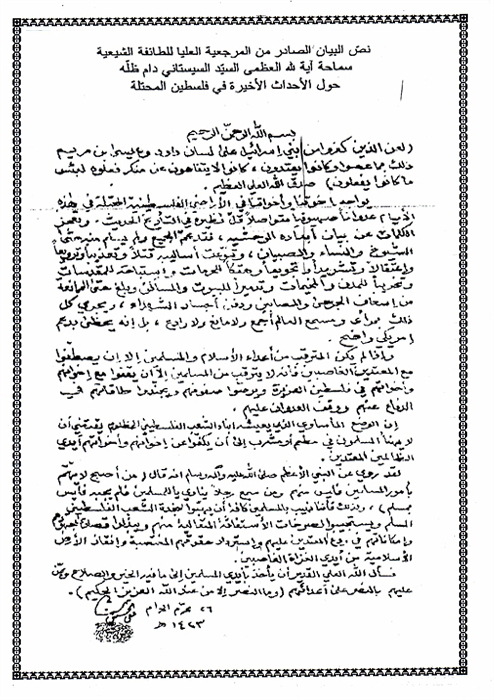 نص البيان الصادر من المرجعية العليا للطائفة الشيعية
سماحة آية لله العظمى السيّد السيستاني دام ظلّه
حول الأحداث الأخيرة في فلسطين المحتلة
بسم الله الرحمن الرحيم
(لعن الذين كفروا من بني إسرائيل على لسان داود وعيسى ابن مريم
ذلك بما عصوا وكانوا يعتدون، كانوا لا يتناهون عن منكر فعلوه لبئس
ما كانوا يفعلون) صدق الله العلي العظيم.
يواجه إخوتنا وأخواتنا في الأراضي الفلسطينية المحتلة في هذه
الأيام عدواناً صهيونياً متواصلاً قلّ نظيره في التاريخ الحديث. وتعجز
الكلمات عن بيان أبعاده الوحشية، فقد عمّ الجميع ولم يسلم منه حتى
الشيوخ والنساء والصبيان، وتنوعت أساليبه قتلاً وتعذيباً وترويعاً
واعتقالاً وتشريداً وتجويعاً وهتكاً للحرمات واستباحة للمقدسات
وتخريباً للمدن والمخيمات وتدميراً للبيوت والمساكن وبلغ حتى الممانعة
من إسعاف الجرحى والمصابين ودفن أجساد الشهداء، ويجري كل
ذلك بمرأى ومسمع العالم أجمع ولا مانع ولا رادع، بل إنه يحظى بدعم
أمريكي واضح.
وإذا لم يكن المترقب من أعداء الإسلام والمسلمين إلا أن يصطفّوا
مع المعتدين الغاصبين فإنه لا يترقب من المسلمين إلا أن يقفوا مع إخوانهم
وأخواتهم في فلسطين العزيزة ويرصّوا صفوفهم ويجنّدوا طاقاتهم في
الدفاع عنهم ووقف العدوان عليهم.
إن الوضع المأساوي الذي يعيشه أبناء الشعب الفلسطيني المظلوم يقتضي أن
لا يهنأ المسلمون في مطعم أو مشرب إلى أن يكفّوا عن إخوانهم وأخواتهم أيدي
الظالمين المعتدين.
لقد روي عن النبي الأعظم صلى الله عليه وآله وسلم أنه قال (من أصبح لا يهتمّ
بأمور المسلمين فليس منهم ومن سمع رجلاً ينادي يا للمسلمين فلم يجبه فليس
بمسلم)، ولذلك فإننا نهيب بالمسلمين كافة أن يهبّوا لنجدة الشعب الفلسطيني
المسلم ويستجيبوا لصرخات الاستغاثة المتعالية منهم ويبذلوا قصارى جهودهم
وإمكاناتهم في ردع المعتدين عليهم واسترداد حقوقهم المغتصبة وإنقاذ الأرض
الإسلامية من أيدي الغزاة الغاصبين.
نسأل الله العلي القدير أن يأخذ بأيدي المسلمين إلى ما فيه الخير والصلاح ويمنّ
عليهم بالنصر على أعدائهم (وما النصر إلا من عند الله العزيز الحكيم).
٢٦ محرّم الحرام
١٤٢٣ هـ